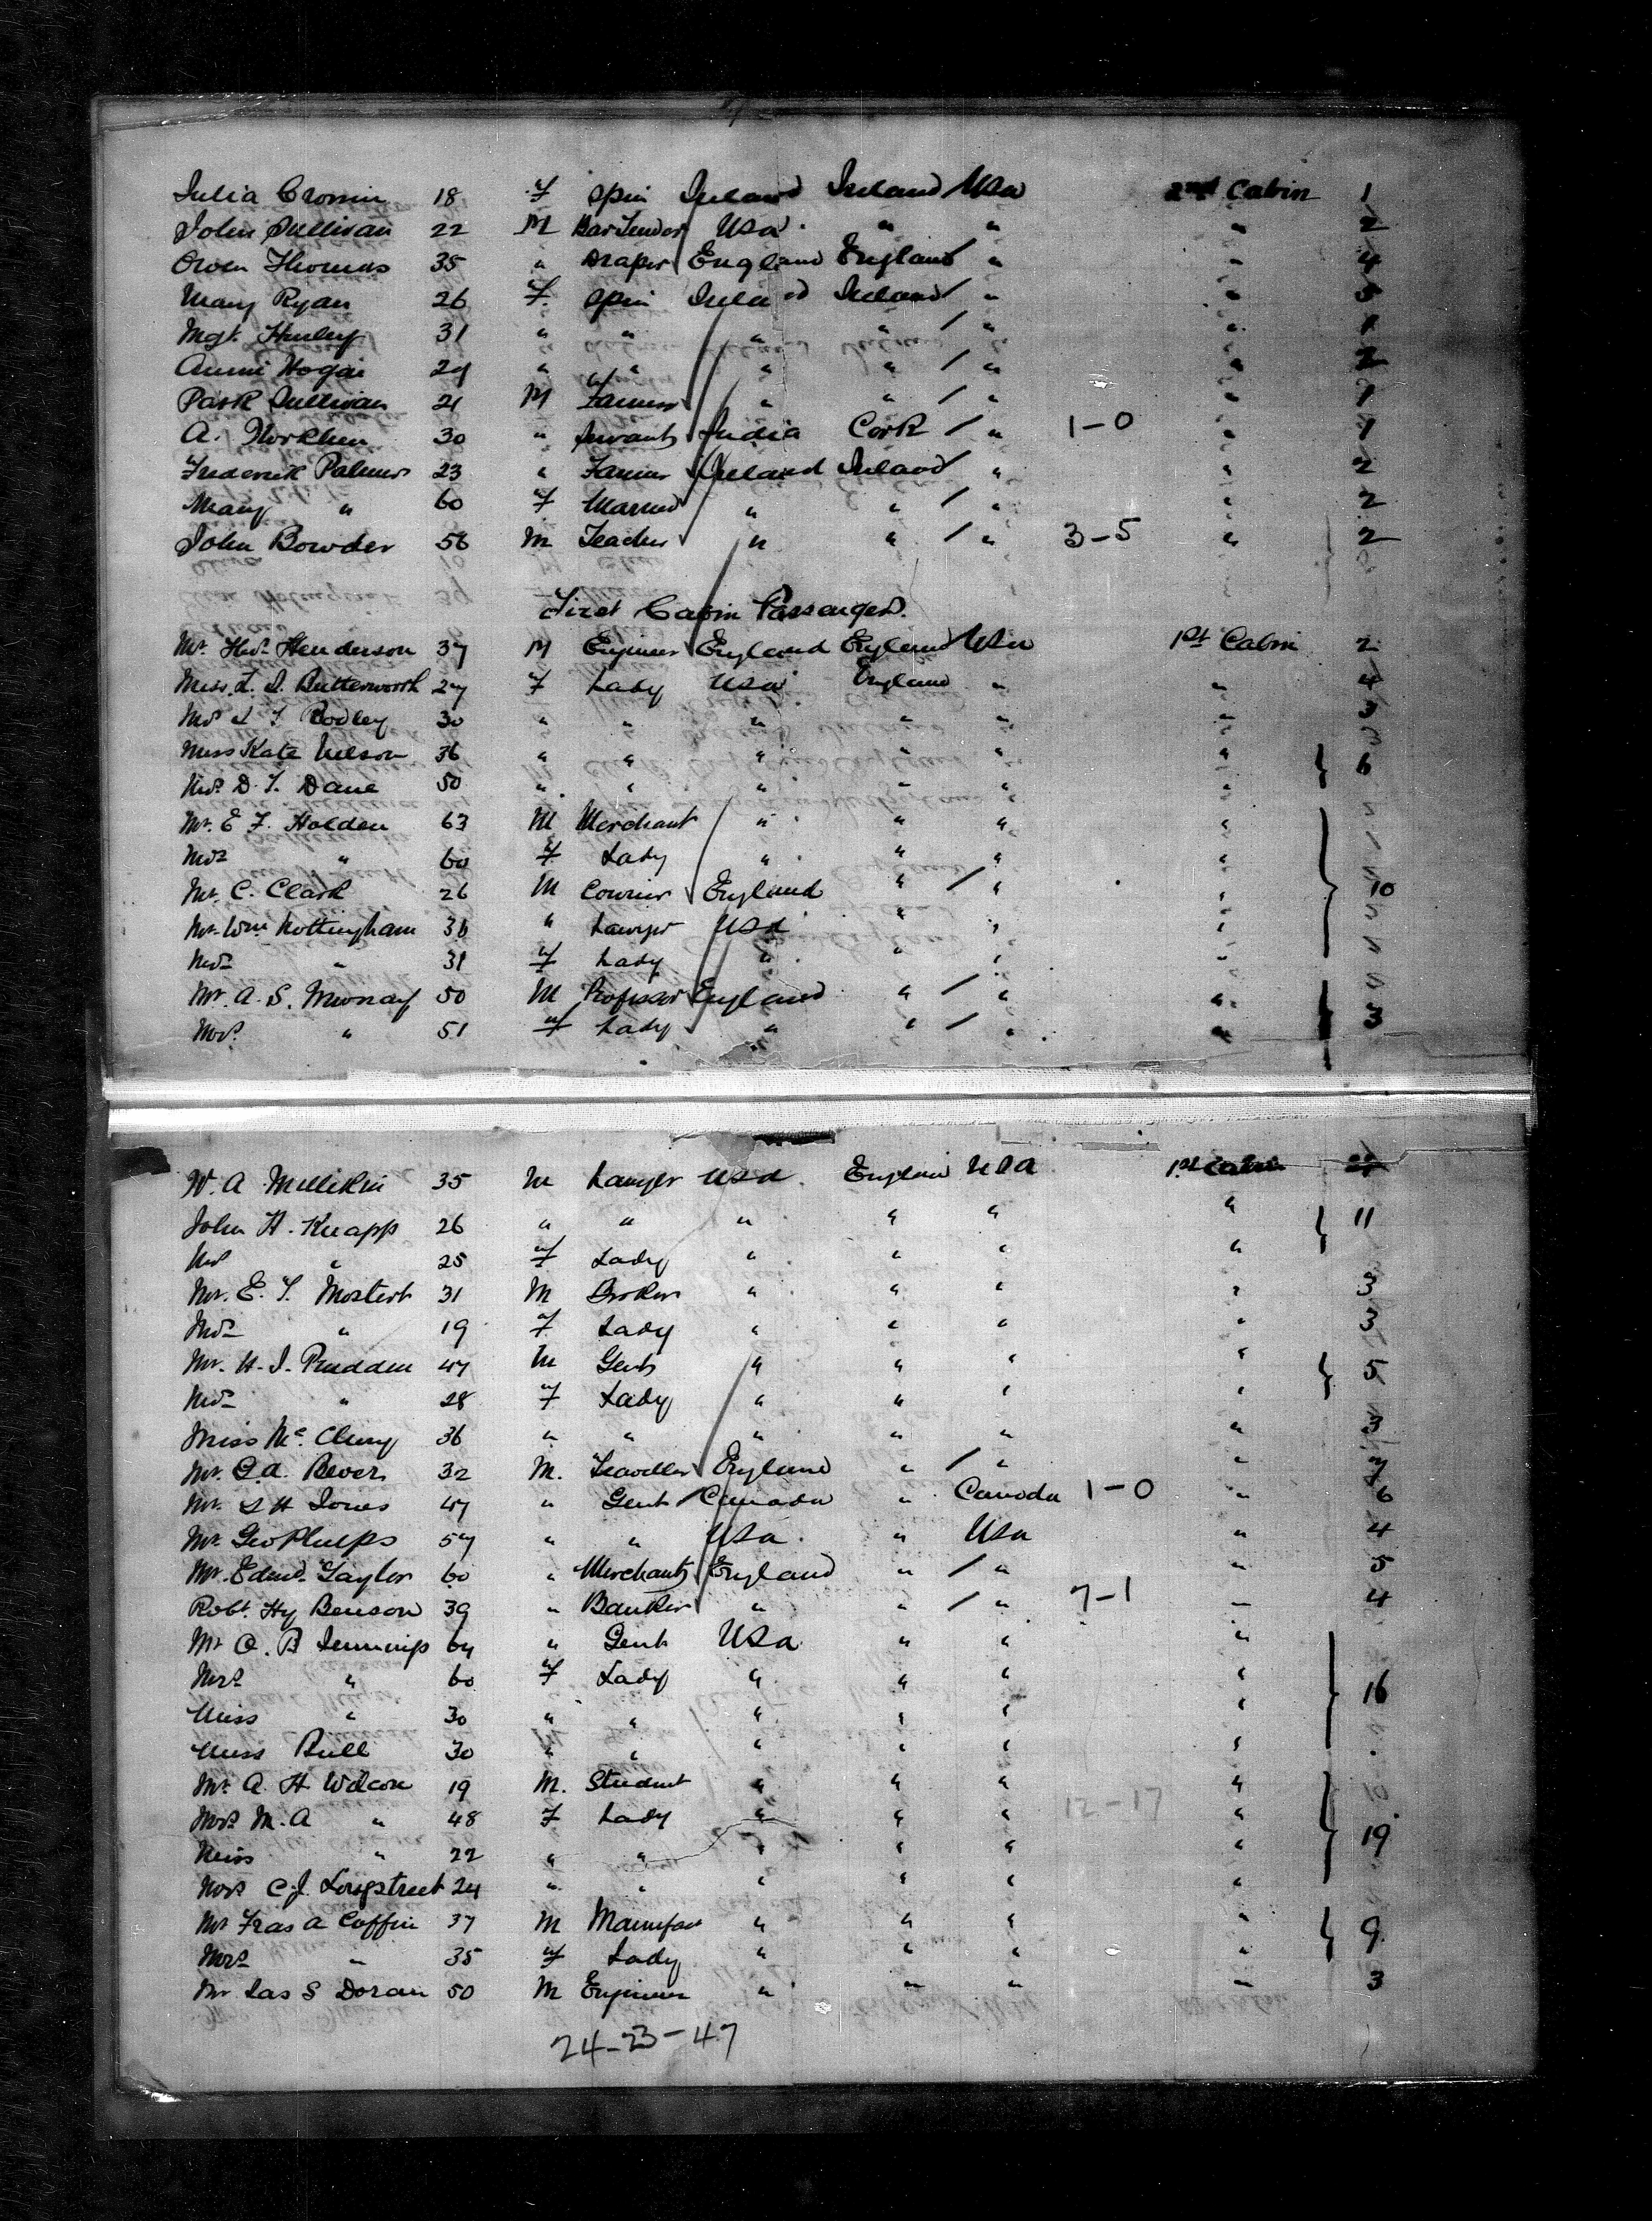 Julia Cronin 18 F Spin Ireland Ireland USA 2nd Cabin 1
John Sullivan 22 M Bartender USA " " " 2
Owen Thomas 35 " Draper England England " " 4
Mary Ryan 26 F Spin Ireland Ireland " " 5
Mgt. Hurley 31 " " " " " " 1
Annie Hogan 29 " " " " " " 2
Patk Sullivan 21 M Farmer " " " " 1
A. 30 " Servant India Cork " 1-0 " 1
Frederick Palmer 23 " Farmer Ireland Ireland " " 2
Mary " 60 F Married " " " " 2
John Bowder 56 M Teacher " " " 3-5 " 2
First Cabin Passengers.
Mr. Thos. Henderson 37 M Engineer England England USA 1st Cabin 2
Miss L. I. Butterworth 27 F Lady USA England " " 4
Mrs Bodley 30 " " " " " " 3
Miss Kate Nelson 36 " " " " " " } 6
Mrs. D. T. Dane 50 " " " " " "
Mr. E F. Holden 63 M Merchant " " " "
Mrs " 60 F Lady " " " "
Mr. C. Clark 26 M Courier England " " " } 10
Mr. Wm. Nottingham 36 " Lawyer USA " " "
Mrs " 31 F Lady " " " "
Mr. A. S. Murray 50 M Professor England " " " } 3
Mrs. " 51 F Lady " " " "
W. A. Millikin 35 M Lawyer USA England USA 1st Cabin
John H. Knapp 26 " " " " " " } 11
Mrs " 25 F Lady " " " "
Mr. E. T. Mostert 31 M Broker " " " " 3
Mrs " 19 F Lady " " " " 3
Mr. H. I. Prudden 47 M Gent " " " " } 5
Mrs " 28 F Lady " " " "
Miss Mc. Clurg 36 " " " " " " 3
Mr. G. A. Bever 32 M. Traveller England " " " 7
Mr. S H Jones 47 " Gent Canada " Canada 1-0 " 6
Mr. Geo Phelps 57 " " USA " USA " 4
Mr. Edmd. Taylor 60 " Merchant England " " " 5
Robt. Hy Benson 39 " Banker " " " 7-1 " 4
Mr O. B Jennings 64 " Gent USA " " "
Mrs " 60 F Lady " " " " } 16
Miss " 30 " " " " " "
Miss Bull 30 " " " " " "
Mr. A. H Wilcox 19 M. Student " " " "
Mrs M. A " 48 F Lady " " " 12-17 "
Miss " 22 " " " " " " } 19
Mrs C. J. Longstreet 24 " " " " " "
Mr Fras A Coffin 37 M Manufac " " " " } 9
Mrs " 35 F Lady " " " "
Mr Jas S Doran 50 M Engineer " " " " 3
24-23-47